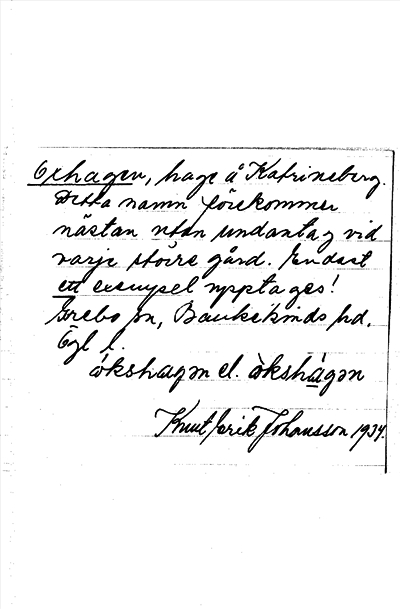 Oxhagen, hage å Katrineberg.
Detta namn förekommer
nästan utan undantag vid
varje större gård. Endast
ett exempel upptages!
Grebo sn, Bankekinds hd,
Ögl l.
ókshagən el. òkshágən
Knut Erik Johansson 1934.